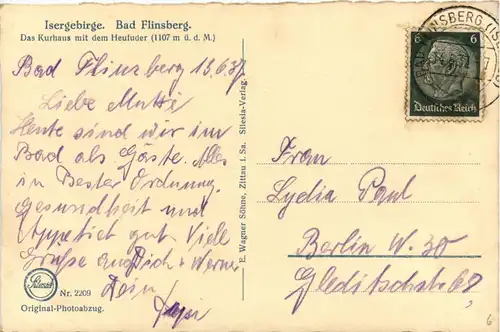 Isergebirge. Bad Flinsberg.
Das Kurhaus mit dem Heufuder (1107 m ü. d. M.)
Bad Flinsberg 13.6.37
Liebe Mutti
Heute sind wir im
Bad als Gäste. Alles
in Bester Ordnung.
Gesundheit und
Appetiet gut. Viele
Grüße an Dich + Werner
Dein
Silesia
Nr. 2209
Original-Photoabzug.
E. Wagner Söhne, Zittau i. Sa. Silesia-Verlag.
FLINSBERG (IS
6 6
Deutsches Reich
Frau
Lydia Paul
Berlin W. 30
Gleditschstr 62
6